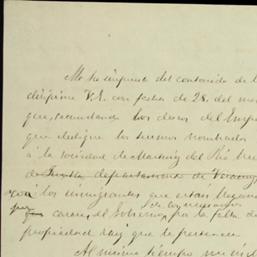 Me he impuesto del contenido de l
dirigirme V.E. con fecha de 28. del me
que, secundando los deseos del Empe
que designe los buenos nombrados
á la sociedad de Martinez del Rio her
de departamento de Veracruz
á los inmigrantes que están llegan
de los necesarios
carece, el Gobierno, por la falta de
propiedad raiz que le pertenezca
Al mismo tiempo